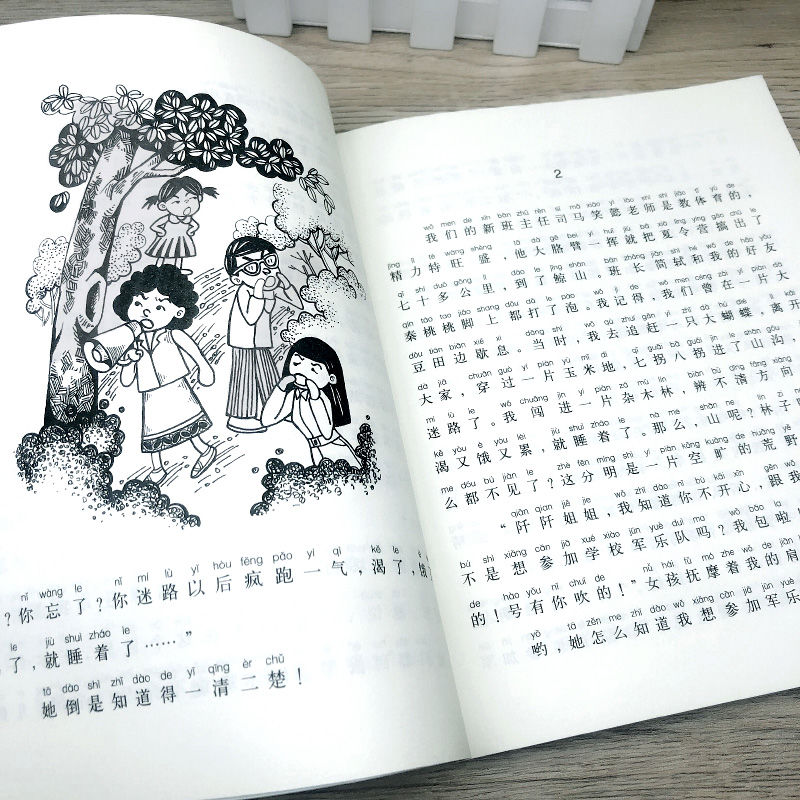 nǐ wàng le nǐ mí lù yǐ hòu fēng pǎo yí qì kě le
？你忘了？你迷路以后疯跑一气，渴了，
le jiù shuì zháo le
了，就睡着了……”
tā dào shì zhī dào de yì qīng èr chǔ
她倒是知道得一清二楚！
2
wǒ men de xīn bān zhǔ rèn sī mǎ xiào yí lǎo shī shì jiāo tǐ yù de
我们的新班主任司马笑懿老师是教体育的，
jīng lì tè wàng shèng tā dà gē bei yì huī jiù bǎ xià lìng yíng gǎo chū le
精力特旺盛，他大胳臂一挥就把夏令营搞出了
qī shí duō gōng lǐ dào le jīng shān bān zhǎng jiǎn shì hé wǒ de hǎo yǒu
七十多公里，到了鲸山。班长简轼和我的好友
qín táo tao jiǎo shang dōu dǎ le pào wǒ jì de wǒ men céng zài yí piàn dà
秦桃桃脚上都打了泡。我记得，我们曾在一片大
dòu tián biān xiē xi dāng shí wǒ qù zhuī gǎn yì zhī dà hú dié lí kāi
豆田边歇息。当时，我去追赶一只大蝴蝶，离开
dà jiā chuān guò yí piàn yù mǐ dì qī guǎi bā guǎi jìn le shān gōu
大家，穿过一片玉米地，七拐八拐进了山沟，
mí lù le wǒ chuǎng jìn yí piàn zá mù lín biàn bù qīng fāng xiàng
迷路了。我闯进一片杂木林，辨不清方向
kě yòu è yòu lèi jiù shuì zháo le nà me shān ne lín zi
渴又饿又累，就睡着了。那么，山呢？林子
me dōu bú jiàn le zhè fēn míng shì yí piàn kōng kuàng de huāng yě
么都不见了？这分明是一片空旷的荒野
qiān qiān jiě jie wǒ zhī dào nǐ bù kāi xīn gēn wǒ
“阡阡姐姐，我知道你不开心，跟我
bú shì xiǎng cān jiā xué xiào jūn yuè duì ma wǒ bāo la
不是想参加学校军乐队吗？我包啦
de hào yǒu nǐ chuī de nǚ hái fǔ mó zhe wǒ de jiān
的！号有你吹的！”女孩抚摩着我的肩
yō tā zěn me zhī dào wǒ xiǎng cān jiā jūn yuè
哟，她怎么知道我想参加军乐